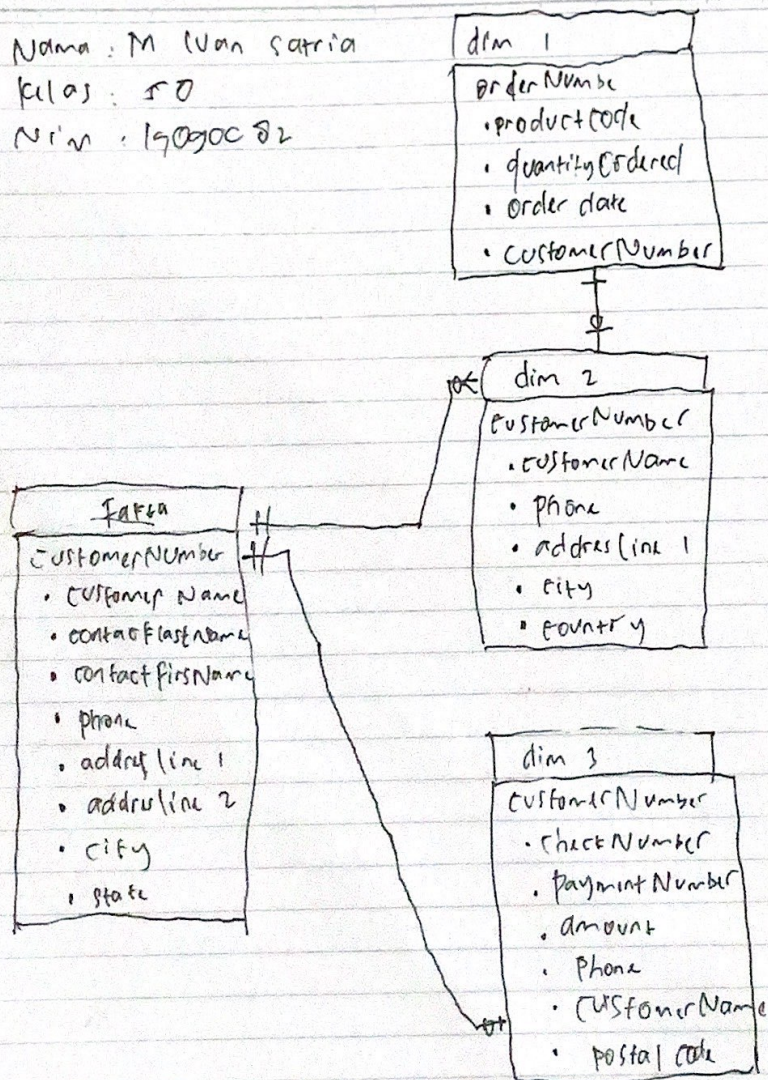 Nama : M Ivan Satria
Kelas : 50
Nim :
dim 1
orderNumbe
• productCode
• quantityOrdered
• order date
• customerNumber
dim 2
customerNumber
• customerName
• phone
• addres line 1
• city
• country
Fakta
customerNumber
• customer Name
• contactLastName
• contactfirsName
• phone
• addres line 1
• addres line 2
• city
• state
dim 3
customerNumber
• checkNumber
• paymentNumber
• amount
• phone
• customerName
• postal code